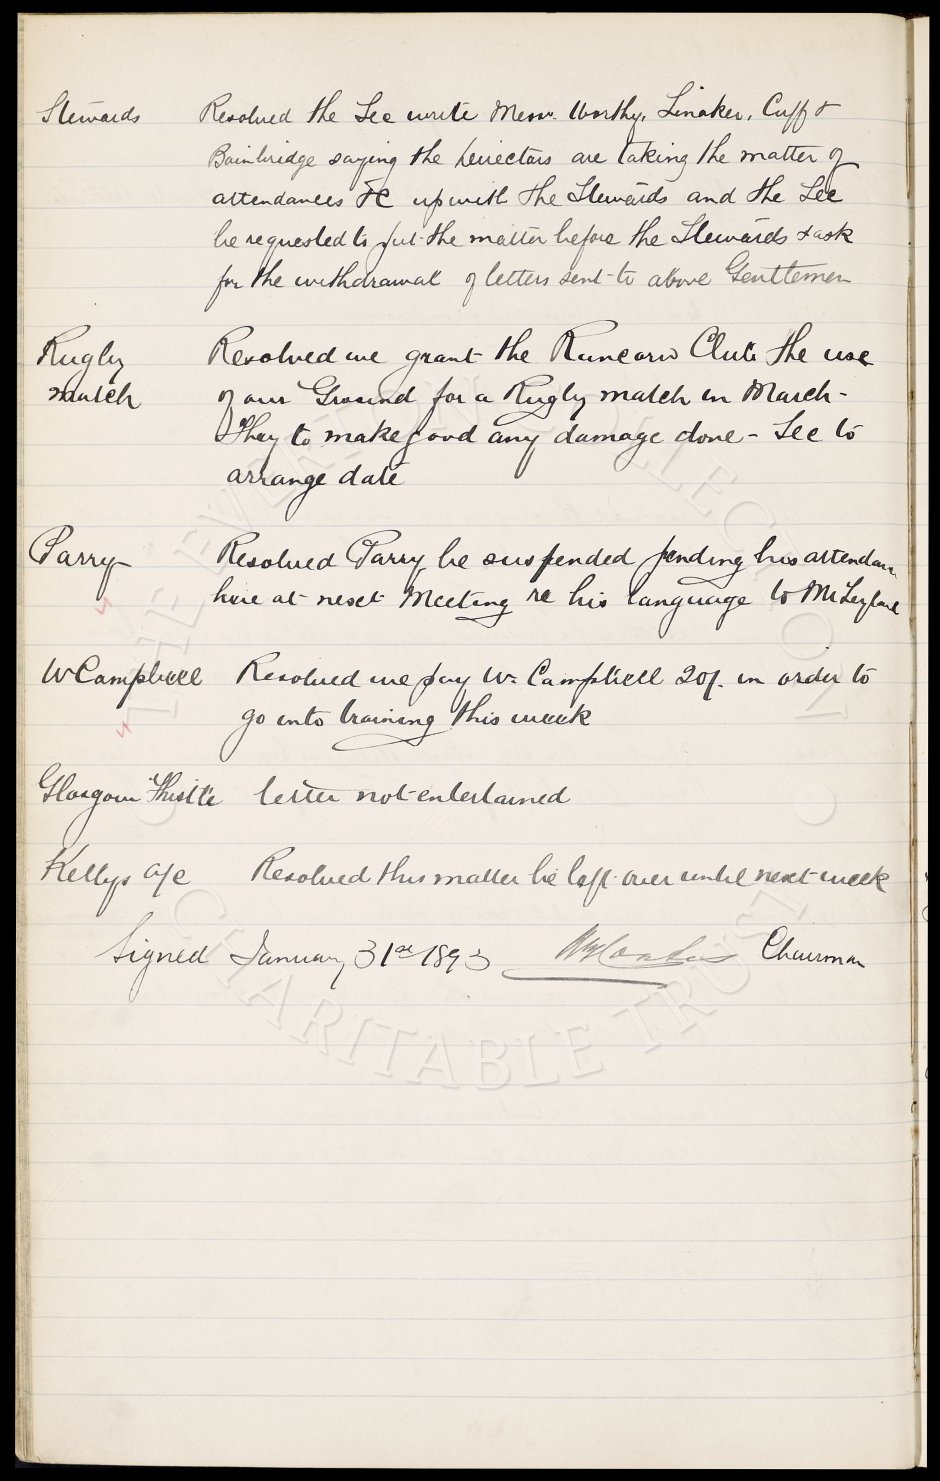 Stewards Resolved the Sec write Messrs Worthy, Linaker, Cuff &
Bainbridge saying the Directors are taking the matter of
attendances &c up with the Stewards and the Sec
be requested to put the matter before the Stewards & ask
for the withdrawal of letters sent to above Gentlemen
Rugby Resolved we grant the Runcorn Club the use
match of our Ground for a Rugby match in March -
They to make good any damage done - Sec to
arrange date
Parry Resolved Parry be suspended pending his attendance
here at next Meeting re his language to Mr Leyland
W Campbell Resolved we pay Wm Campbell 20/- in order to
go into training this week
Glasgow Thistle letter not entertained
Kellys a/c Resolved this matter be left over until next week
Signed January 31st 1893 Chairman
THE EVERTON COLLECTION
CHARITABLE TRUST